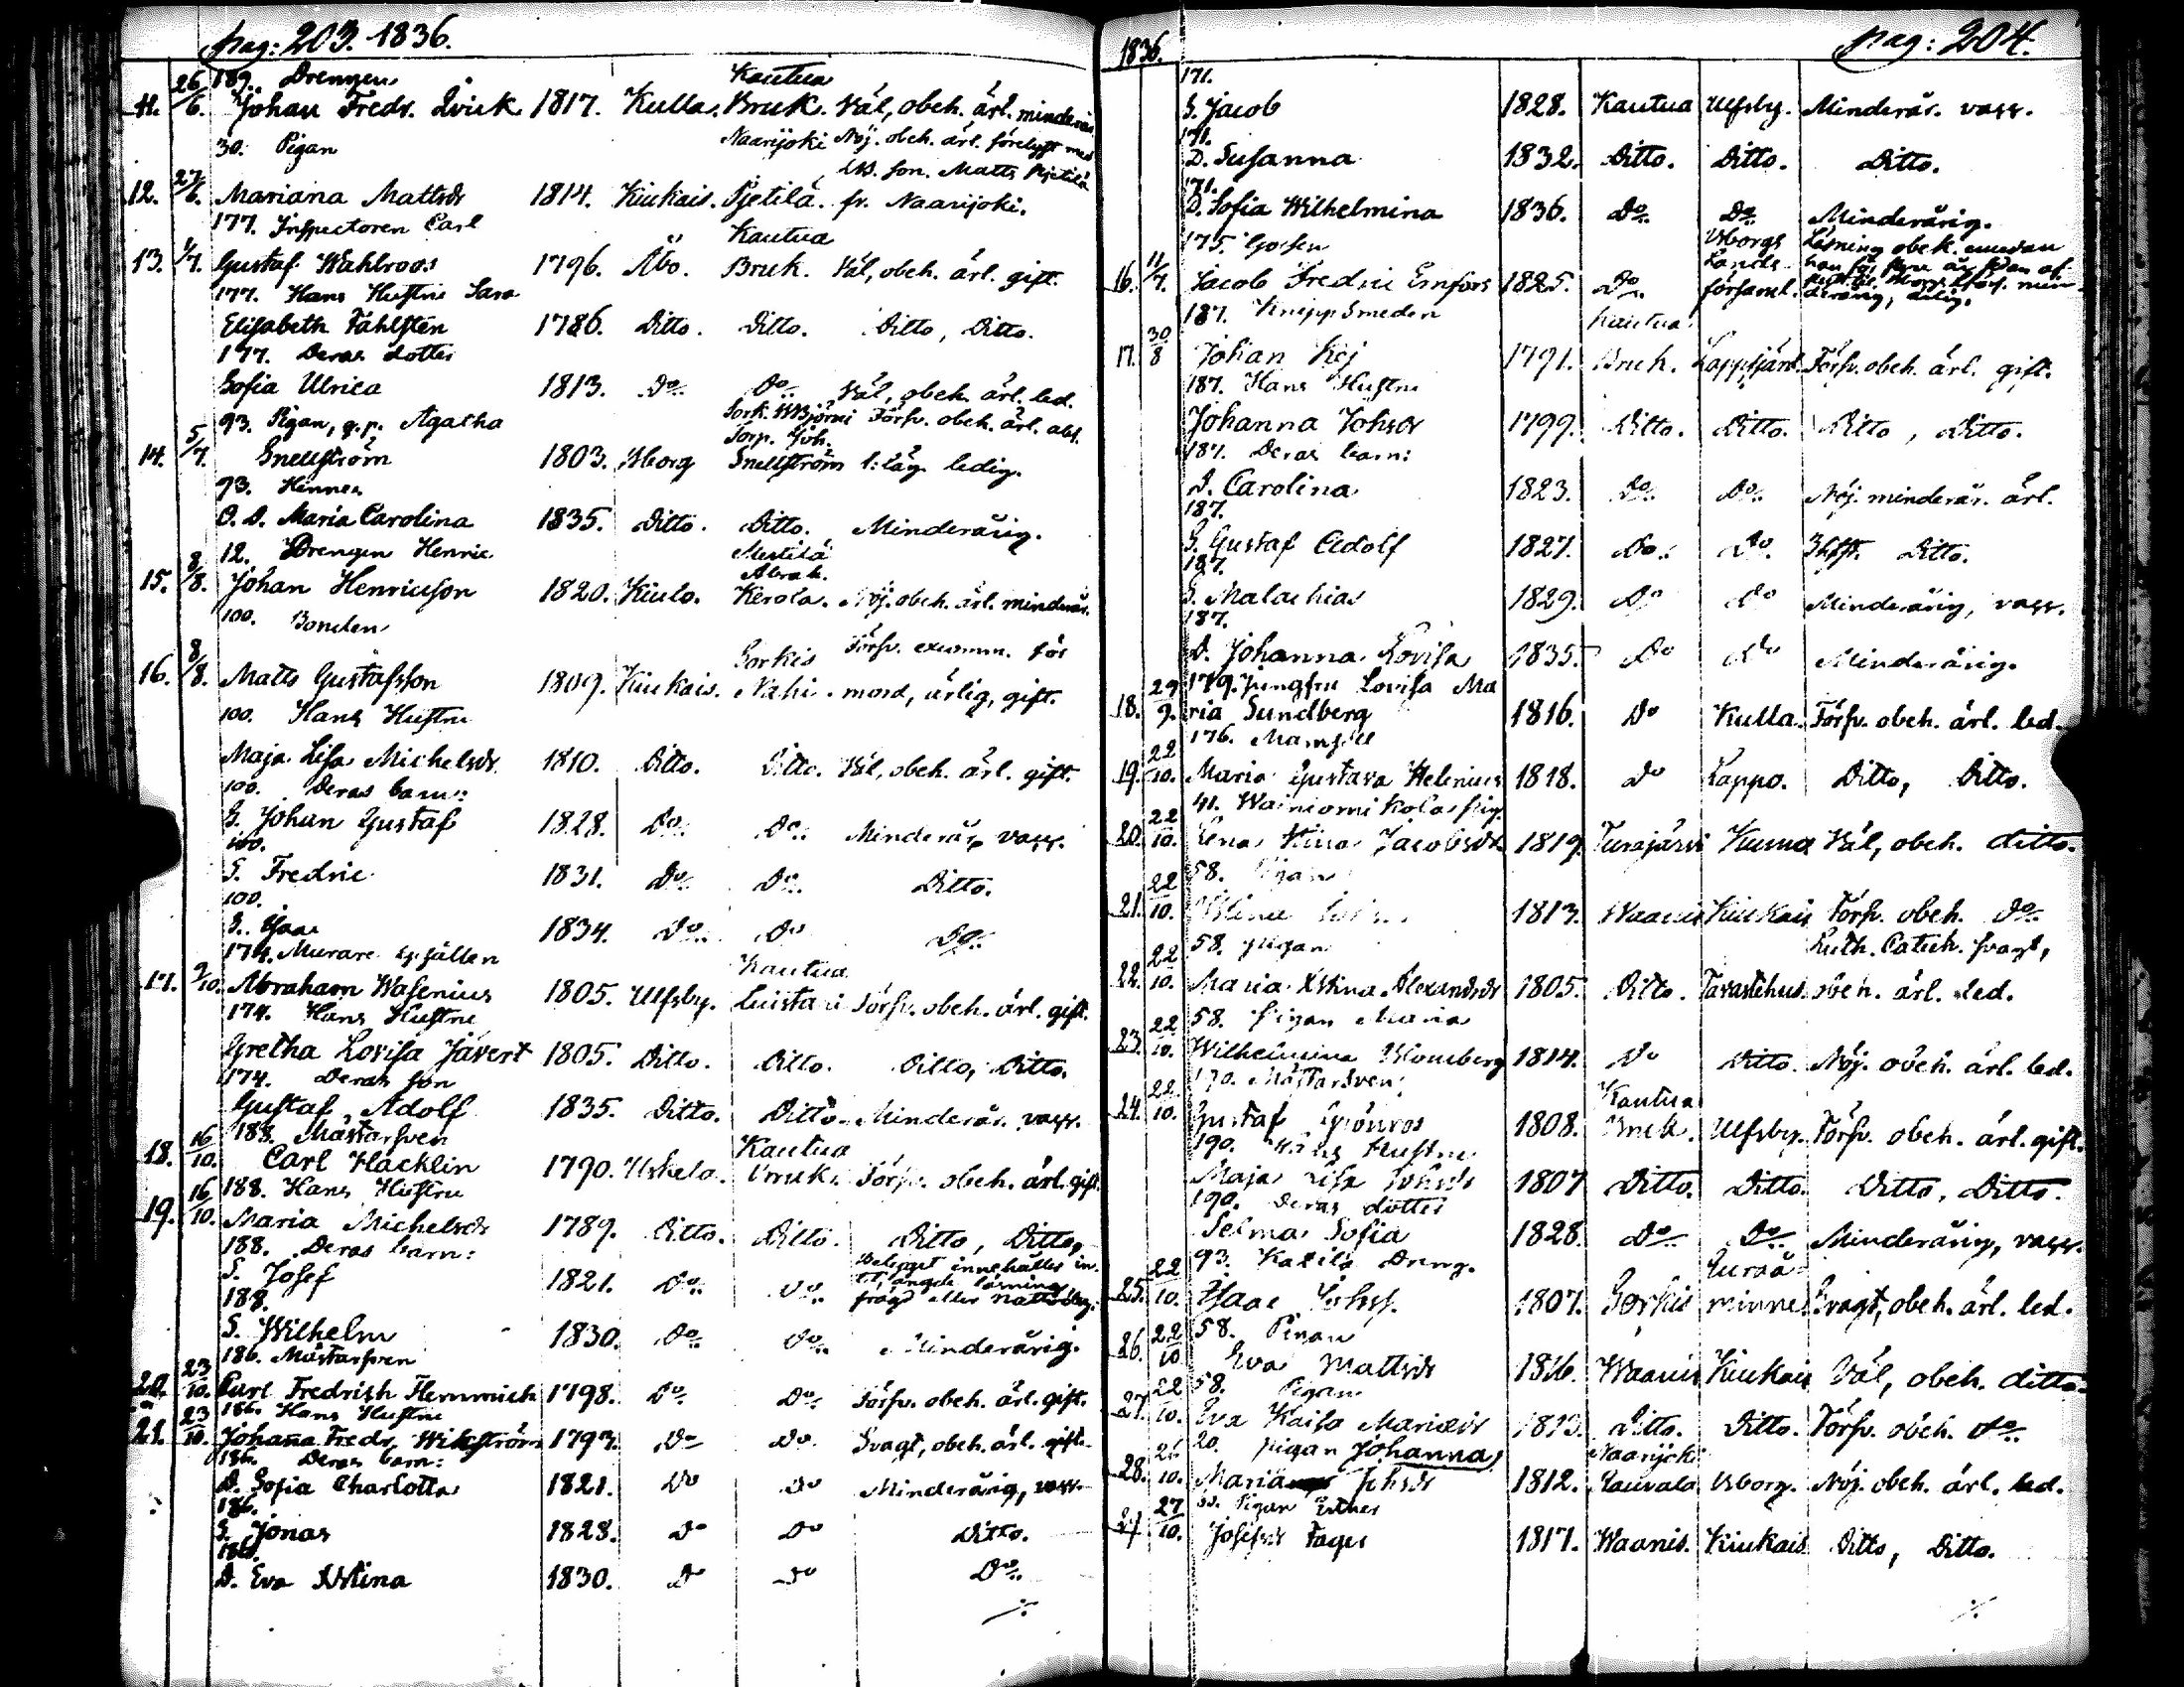 pag: 203. 1836.
26/6 189. Drengen Kautua
11. Johan Fredr. Qvick 1817. Kulla. Bruk. Väl, obeh. ärl. minderår.
30. Pigan Naarijoki Nöj. obeh. ärl. förelyst med
27/6. son. Matts Pjetilä
12. Mariana Mattsdr 1814. Kiukais. Pjetilä. fr. Naarijoki.
177. Inspectoren Carl Kautua
13. 1/7. Gustaf Wahlroos 1796. Åbo. Bruk. Väl, obeh. ärl. gift.
177. Hans Hustru Sara
Elisabeth Fahlsten 1786. Ditto. Ditto. Ditto, Ditto.
177. Deras dotter
Sofia Ulrica 1813. Do Do Väl, obeh. ärl. led.
93. Pigan, q.p. Agatha Försv. obeh. ärl. abs.
5/7. Torp. Joh.
14. Snellström 1803. Wborg Snellström ledig.
93. Hennes
O. D. Maria Carolina 1835. Ditto. Ditto. Minderårig.
12. Drengen Henric Mestilä
8/8. Abrah.
15. Johan Henricsson 1820. Kiulo. Kerola. Nöj. obeh. ärl. minderår.
100. Bonden
8/8. Sorkis Försv. excomm. för
16. Matts Gustafsson 1809. Kiukais. Nahi. mord, ärlig, gift.
100. Hans Hustru
Maja Lisa Michelsdr 1810. Ditto. Ditto. Väl, obeh. ärl. gift.
100. Deras barn:
S. Johan Gustaf 1828. Do Do Minderår. vacc.
100.
S. Fredric 1831. Do Do Ditto.
100.
S. Isaac 1834. Do Do Do
174. Murare gesällen Kautua
17. 9/10. Abraham Wasenius 1805. Ulfsby. Luistari Försv. obeh. ärl. gift.
174. Hans Hustru
Gretha Lovisa Jävert 1805. Ditto. Ditto. Ditto, Ditto.
174. Deras son
Gustaf Adolf 1835. Ditto. Ditto. Minderår. vacc.
16/10. 188. Mästarsven Kautua
18. Carl Hacklin 1790. Uskela. Bruk. Försv. obeh. ärl. gift.
16/10. 188. Hans Hustru
19. Maria Michelsdr 1789. Ditto. Ditto. Ditto, Ditto,
188. Deras barn: Betyget innehåller in-
S. Josef 1821. Do Do tet, angde läsning
188. frågd eller nattvardsg.
S. Wilhelm 1830. Do Do Minderårig.
23/10. 186. Mästarsven
20. Carl Fredrich Hemmich 1798. Do Do Försv. obeh. ärl. gift.
23/10. 186. Hans Hustru
21. Johanna Fredr. Wikström 1793. Do Do Svagt, obeh. ärl. gift.
186. Deras barn:
D. Sofia Charlotta 1821. Do Do Minderårig, vacc.
186.
S. Jonas 1828. Do Do Ditto.
186.
D. Eva Stina 1830. Do Do Do
1836. pag: 204.
171.
S. Jacob 1828. Kautua Ulfsby. Minderår. vacc.
171.
D. Susanna 1832. Ditto. Ditto. Ditto.
171.
D. Sofia Wilhelmina 1836. Do Do Minderårig.
175. Gossen Wborgs Läsning obek. emedan
11/7. Lands
16. Jacob Fredric Ernfors 1825. Do församl. minderårig, ledig.
187. Knippsmeden Kautua
30/8
17. Johan Kej 1791. Bruk. Lappfjärd. Försv. obeh. ärl. gift.
187. Hans Hustru
Johanna Johsdr 1799. Ditto. Ditto. Ditto, Ditto.
187. Deras barn:
D. Carolina 1823. Do Do Nöj. minderår. ärl.
187.
S. Gustaf Adolf 1827. Do Do Ditto.
187.
S. Malachias 1829. Do Do Minderårig, vacc.
187.
D. Johanna Lovisa 1835. Do Do Minderårig.
29/9. 179. Jungfru Lovisa Ma
18. ria Sundberg 1816. Do Kulla. Försv. obeh. ärl. led.
22/10. 176. Mamsell
19. Maria Gustava Helenius 1818. Do Lappo. Ditto, Ditto.
22/10. 41. Wainiomi Kolas pig.
20. Lena Stina Jacobsdr 1819. Turajärvi Kumo Väl, obeh. ditto.
22/10. 58. Pigan
21. 1813. Waanis Kiukais Försv. obeh. Do
22/10. 58. pigan Luth. Catech. svagt,
22. Maria Stina Alexandsdr 1805. Ditto. Tavastehus obeh. ärl. led.
22/10. 58. Pigan Maria
23. Wilhelmina Blomberg 1814. Do Ditto. Nöj. obeh. ärl. led.
22/10. 190. Mästarsven Kautua
24. Gustaf Grönroos 1808. Bruk. Ulfsby. Försv. obeh. ärl. gift.
190. Hans Hustru
Maja Lisa Johsdr 1807 Ditto. Ditto. Ditto, Ditto.
190. Deras dotter
Selma Sofia 1828. Do Do Minderårig, vacc.
22/10. 93. Katila Dreng. Euraå
25. Isaac Johss. 1807. Sorkis minne. Svagt, obeh. ärl. led.
22/10 58. Pigan
26. Eva Mattsdr 1816. Waanis Kiukais Väl, obeh. ditto.
22/10. 58. Pigan
27. Eva Kaisa Mariædr 1813. Ditto. Ditto. Försv. obeh. Do
20. pigan Johanna Naarijoki
28. 10. Maria Johsdr 1812. Lauvala Wborg. Nöj. obeh. ärl. led.
27/10. Pigan Esther
29. Josefsdr Fager 1817. Waanis. Kiukais Ditto, Ditto.